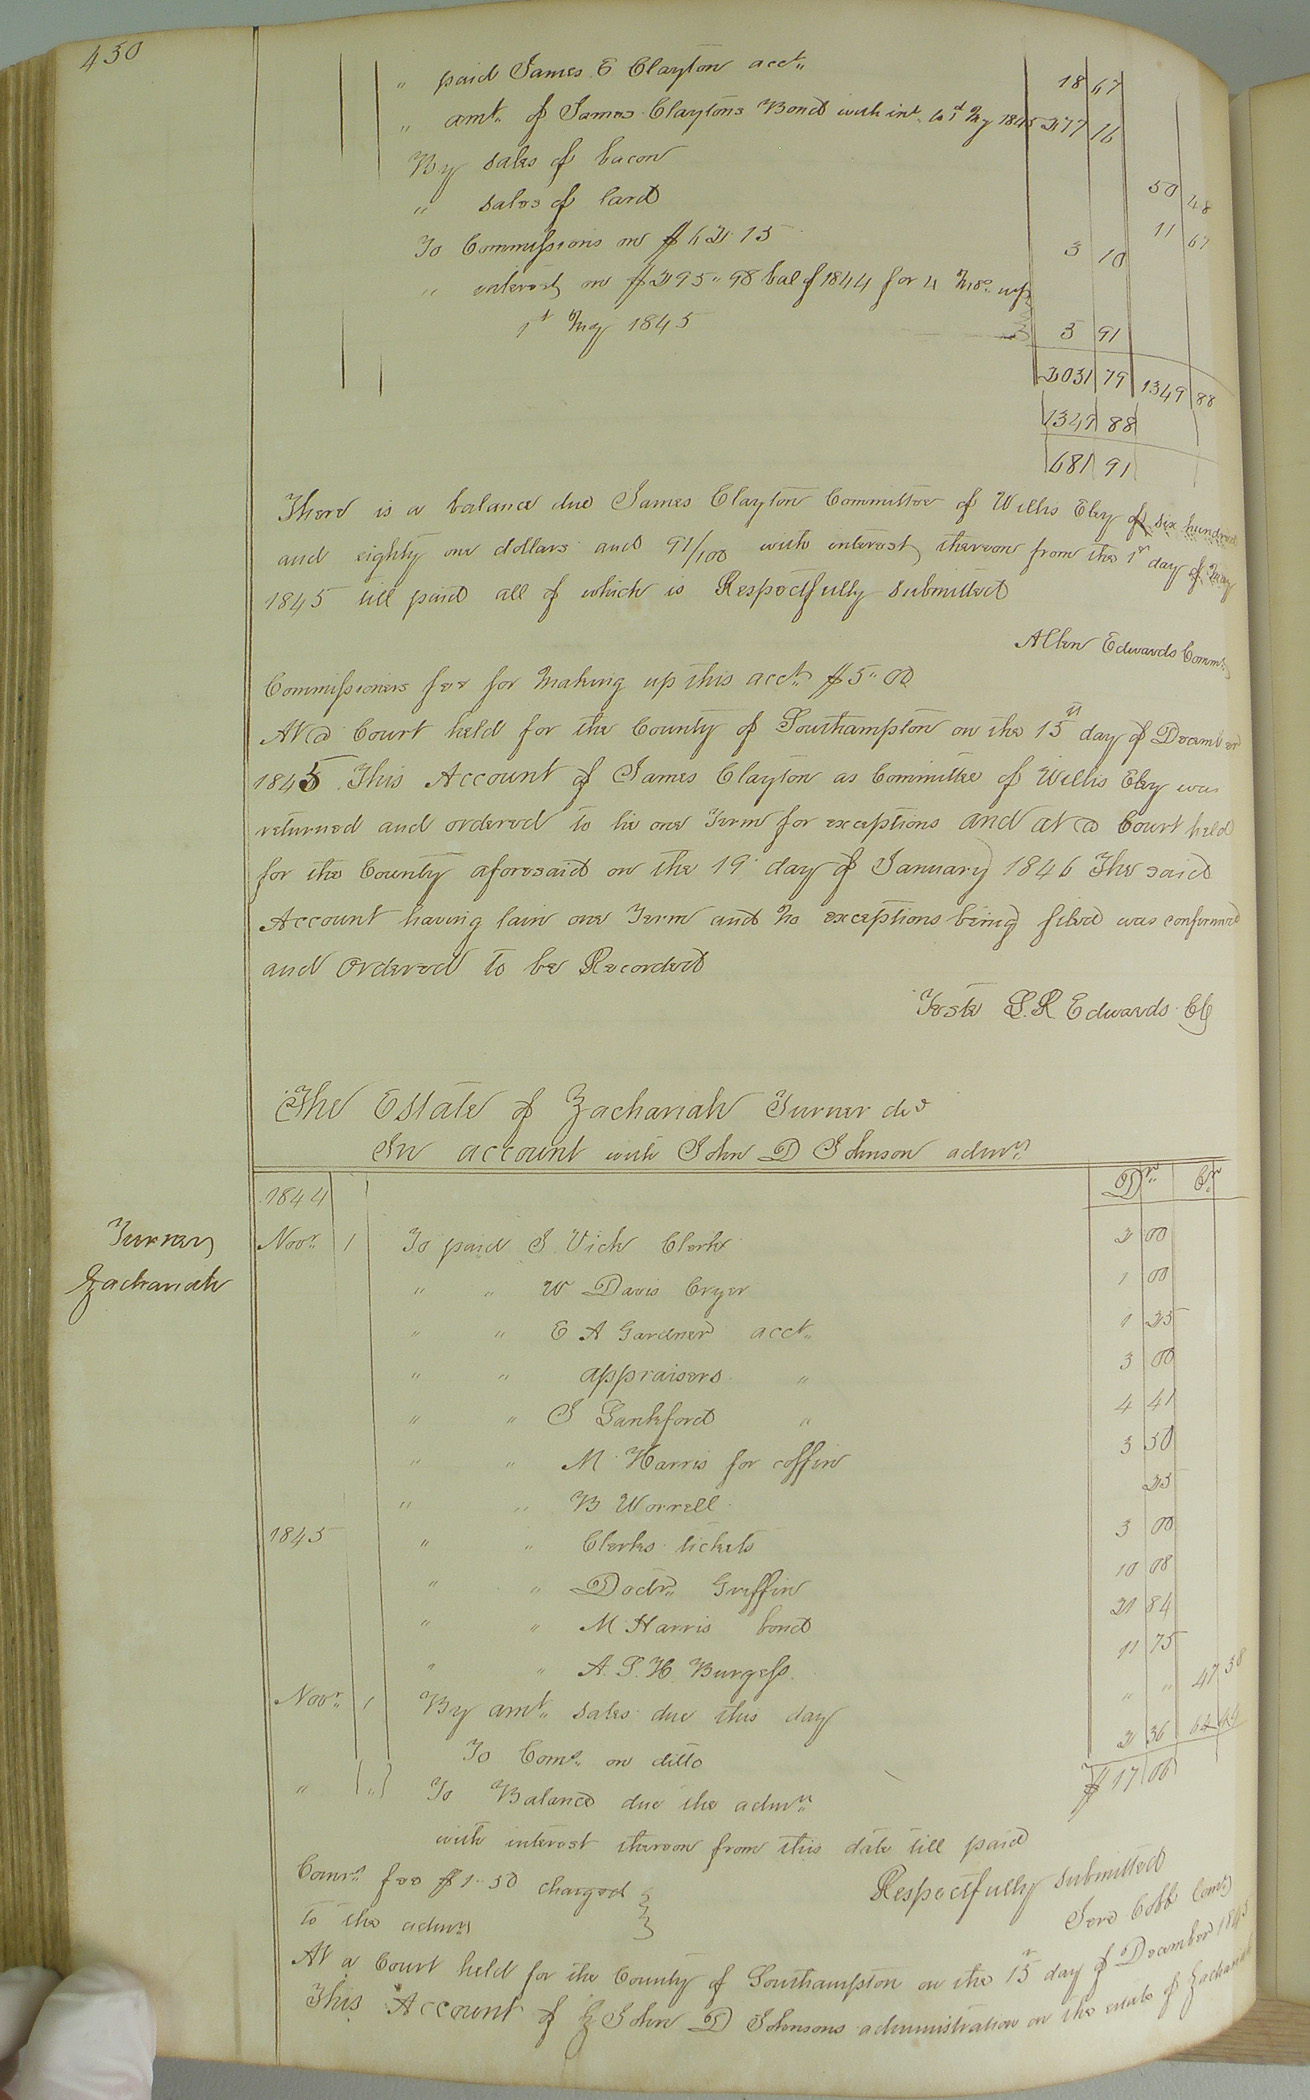 430
" paid James E Clayton acct. 18 67
" amt. of James Claytons Bond with int. to 1st My 1845 277 16
By sales of bacon 50 48
" sales of lard 11 67
To Commissions on $62.15 3 10
" interest on $295"98 bal of 1844 for 4 Mos. up
1st May 1845 5 91
2031 79 1349 88
1349 88
681 91
There is a balance due James Clayton Committee of Willis Eley of six hundred
and eighty one dollars and 91/100 with interest thereon from the 1st day of May
1845 till paid all of which is Respectfully submitted
Allen Edwards Commr
Commissioners fee for making up this acct. $5"00
At a Court held for the County of Southampton on the 15th day of December
1845 This Account of James Clayton as Committee of Willis Eley was
returned and ordered to lie one Term for exceptions and at a Court held
for the County aforesaid on the 19 day of January 1846 The said
Account having lain one Term and no exceptions being filed was confirmed
and Ordered to be Recorded
Teste L. R. Edwards Clk
The Estate of Zachariah Turner decd
In account with John D Johnson admr.
1844 Dr. Cr.
Turner
Zachariah
Novr. 1 To paid J. Vick Clerk 2 00
" " W Davis Cryer 1 00
" " E A Gardner acct. 1 25
" " appraisers " 3 00
" " J Lankford " 4 41
" " M Harris for coffin 3 50
" " B Worrell 25
1845 " " Clerks tickets 3 00
" " Doctr. Griffin 10 08
" " M Harris bond 21 84
" " A. S. H. Burgess 11 75
Novr. 1 By amt. sales due this day " " 47 38
To Comn. on ditto 2 36 64 44
" " To Balance due the admr. $17 06
with interest thereon from this date till paid
Comrs. fee $1.50 charged Respectfully submitted
to the admr. Jere Cobb Comr
At a Court held for the County of Southampton on the 15 day of December 1845
This Account of Z John D Johnsons administration on the estate of Zachariah